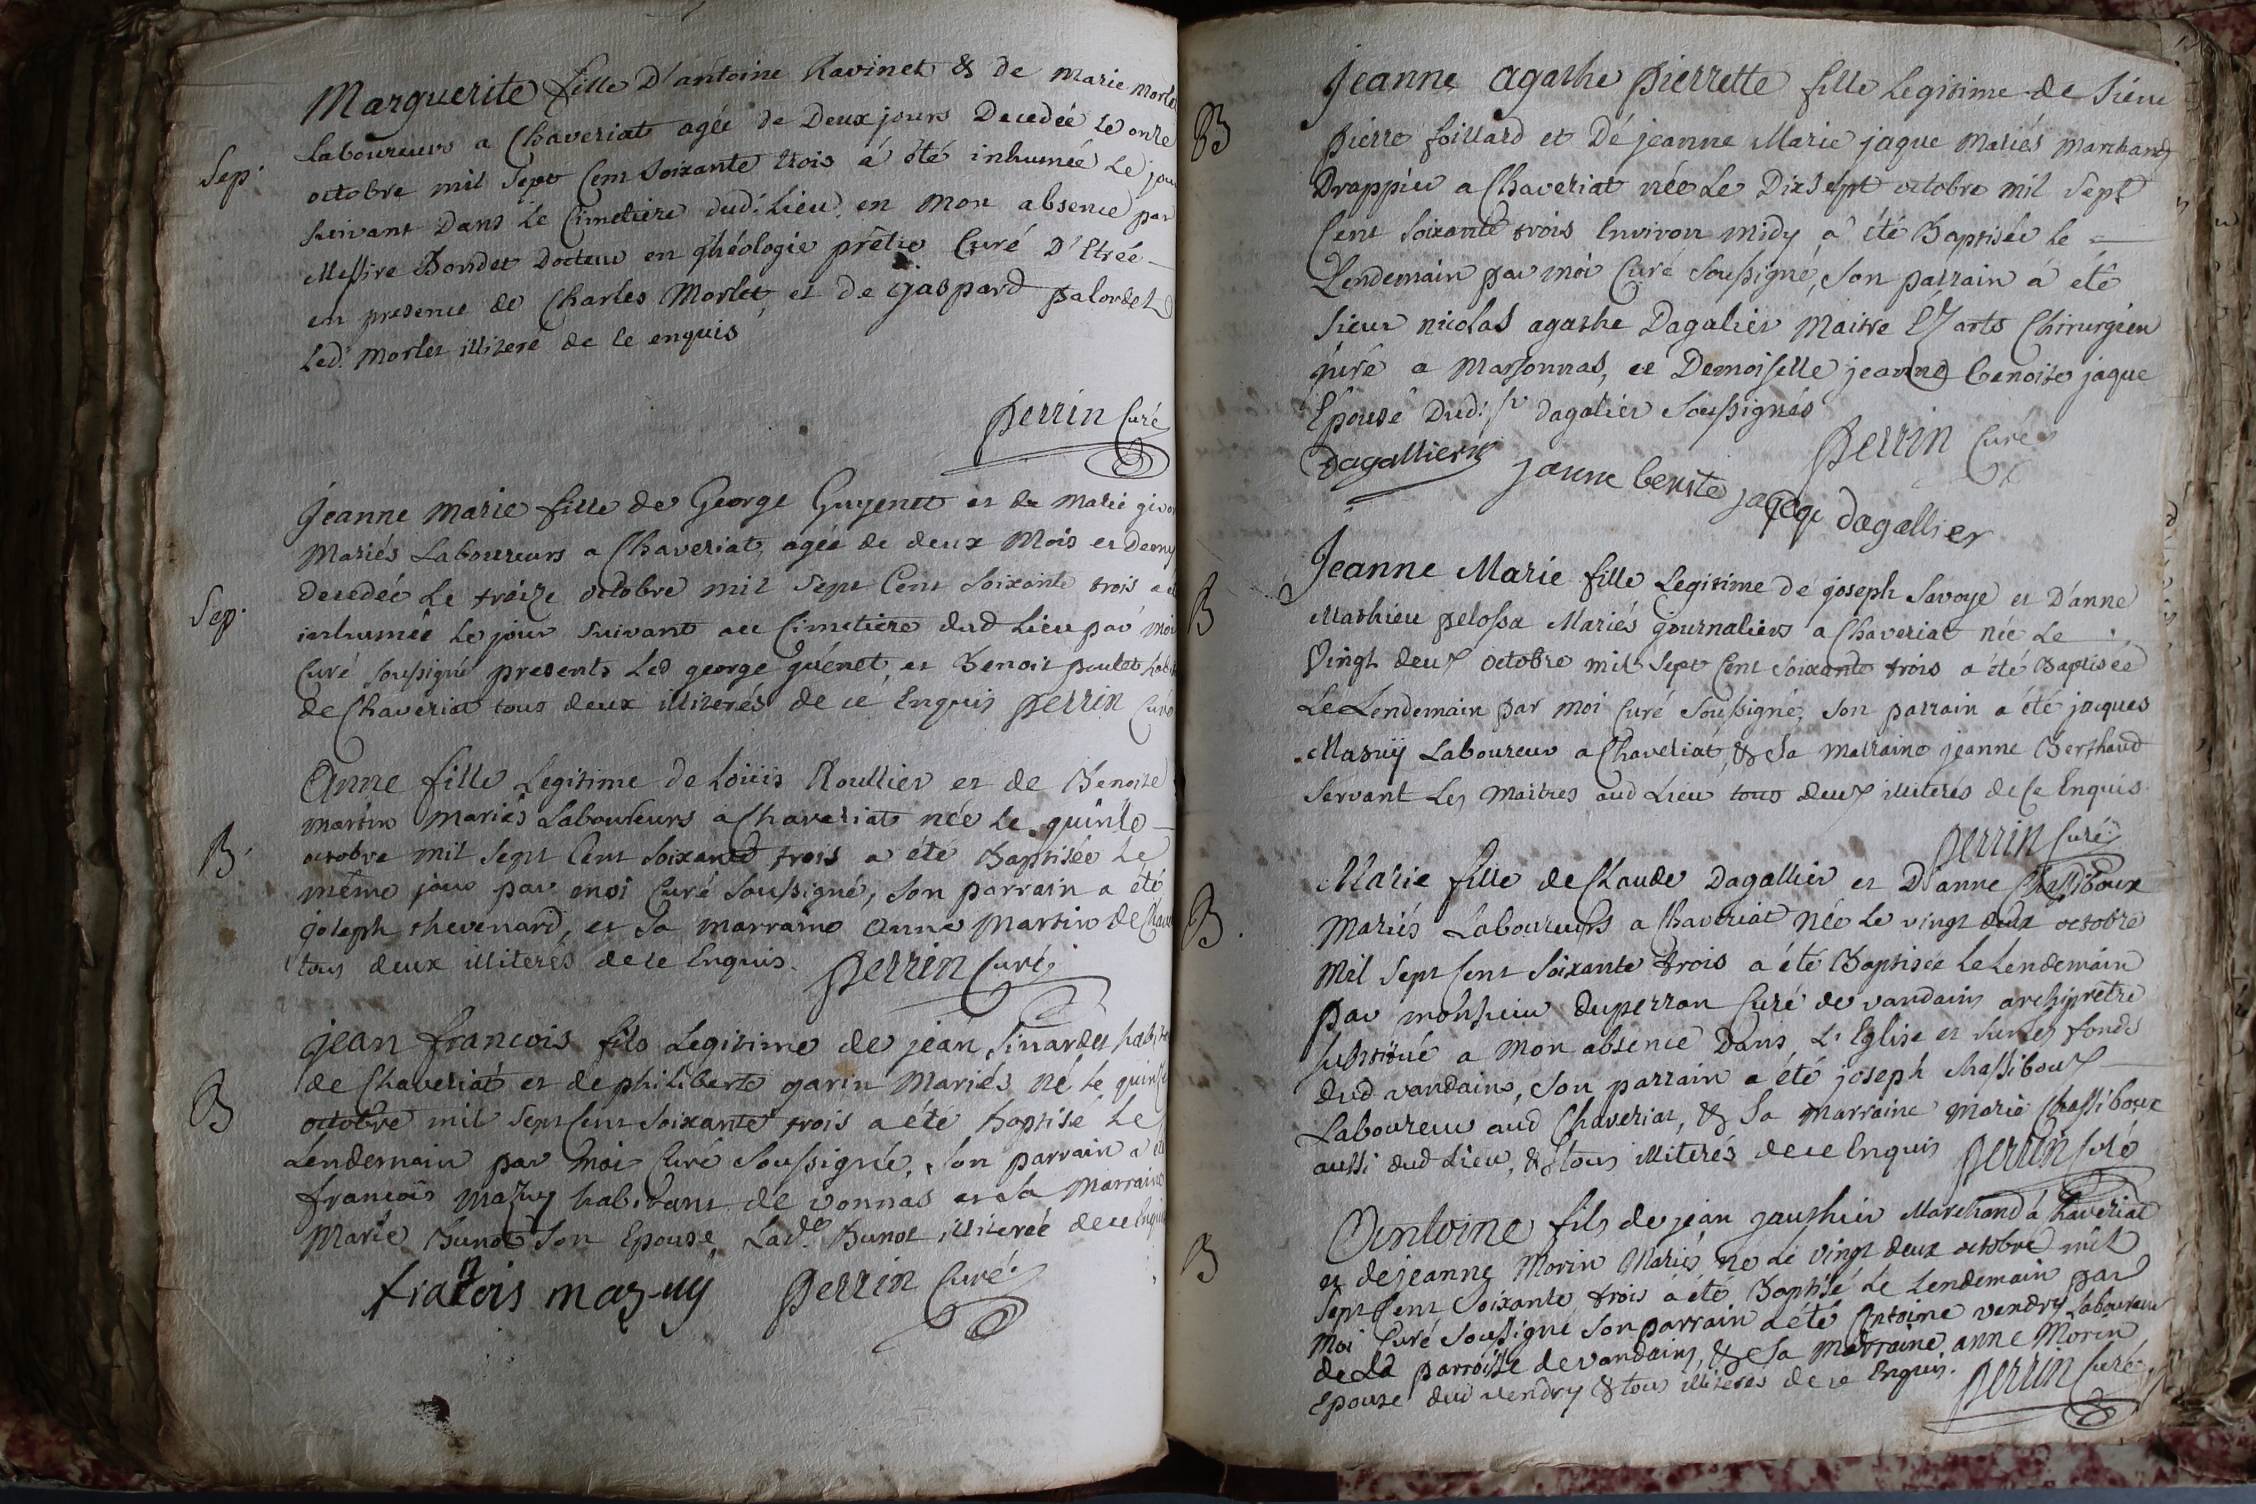 Marguerite fille D'antoine Ravinet & de marie morlet
Laboureurs a Chaveriat agée de Deux jours Decedée le onze
Sep.
octobre mil Sept Cent Soixante trois á été inhumée Le jour
suivant Dans Le Cimetiere dud. Lieu, en mon absence par
Messire Bondet Docteur en théologie prêtre Curé D'Etrée
en presence de Charles Morlet et de gaspard palordet
Led. Morlet illiteré de ce enquis
perrin Curé
Jeanne marie fille de George Guyenet et de marie givor
Mariés Laboureurs a Chaveriat, agée de deux Mois et Demy
decedée Le treize octobre mil Sept Cent Soixante trois a été
Sep.
inhumée Le jour Suivant au Cimetiere dud Lieu par moi
Curé soussigné presents Led george guénet, et Benoit poulet
de Chaveriat tous deux illiterés de ce Enquis perrin Curé
Anne fille Legitime de Loüis Roullier et de Benoite
martin Mariés Laboureurs a Chaveriat née Le quinze
B.
octobre mil Sept Cent Soixante trois a été Baptisée Le
même jour par moi Curé Soussigné, son parrain a été
joseph thevenard, et Sa marraine Anne Martin de
tous deux illiterés de ce Enquis. perrin Curé
jean francois fils Legitime de jean Sinardet
de Chaveriat et de philiberte garin Mariés né Le quinze
B
octobre mil Sept Cent Soixante trois a été baptisé Le
Lendemain par Moi Curé Soussignée, Son parrain a été
francois Mazuy habitant de vonnas et sa Marraine
Marie Bunot Son Epouse, Lade. Bunot illiterée de ce Enquis
fratois mazuy perrin Curé
Jeanne Agathe pierrette fille Legitime de Sieur
B
pierre foillard et Dé jeanne Marie jaque Mariés marchand
Drappier a Chaveriat née Le Dixsept octobre mil Sept
Cent Soixante trois Environ midy a été Baptisée Le
Lendemain par moi Curé Soussigné, Son parrain á été
Sieur nicolas agathe Dagalier Maitre Ez arts Chirurgien
juré a Marsonnas, et Demoiselle jeanne Benoite jaque
Epouse Dud. Sr dagalier Soussignés
Dagallier perrin Curé
janne benoite jaque dagallier
Jeanne Marie fille Legitime de joseph Savoye et D'anne
B
Mathieu pelossa Mariés journaliers a Chaveriat née Le
Vingt deux octobre mil Sept Cent Soixante trois a été Baptisée
Le Lendemain par moi Curé Soussigné, Son parrain a été jacques
Mazuÿ Laboureur a Chaveriat, & Sa Marraine jeanne Berthaud
Servant Les maitres aud Lieu tous deux illiterés de Ce Enquis.
perrin Curé
Marie fille de Claude Dagallier et D'anne Chassiboux
B.
Mariés Laboureurs a Chaveriat née Le vingt deux octobre
Mil Sept Cent Soixante trois a été Baptisée Le Lendemain
par monsieur Duperron Curé de vandains archiprêtre
substitué a Mon absence Dans L'Eglise et sur Les fonds
dud vandains, Son parrain a été joseph Chassiboux
Laboureur aud Chaveriat, & Sa Marraine marie Chassiboux
aussi dud Lieu, & tous illiterés de ce Enquis perrin Curé
Antoine fils de jean gauthier Marchand á Chaveriat
B
et de jeanne Morin Mariés né Le vingt deux octobre mil
Sept Cent Soixante trois a été Baptisé Le Lendemain par
Moi Curé Soussigné Son parrain a été Antoine vendry Laboureur
de La parroisse de vandains, & Sa Marraine anne Morin
Epouse dud vendry & tous illiterés de ce Enquis. perrin Curé